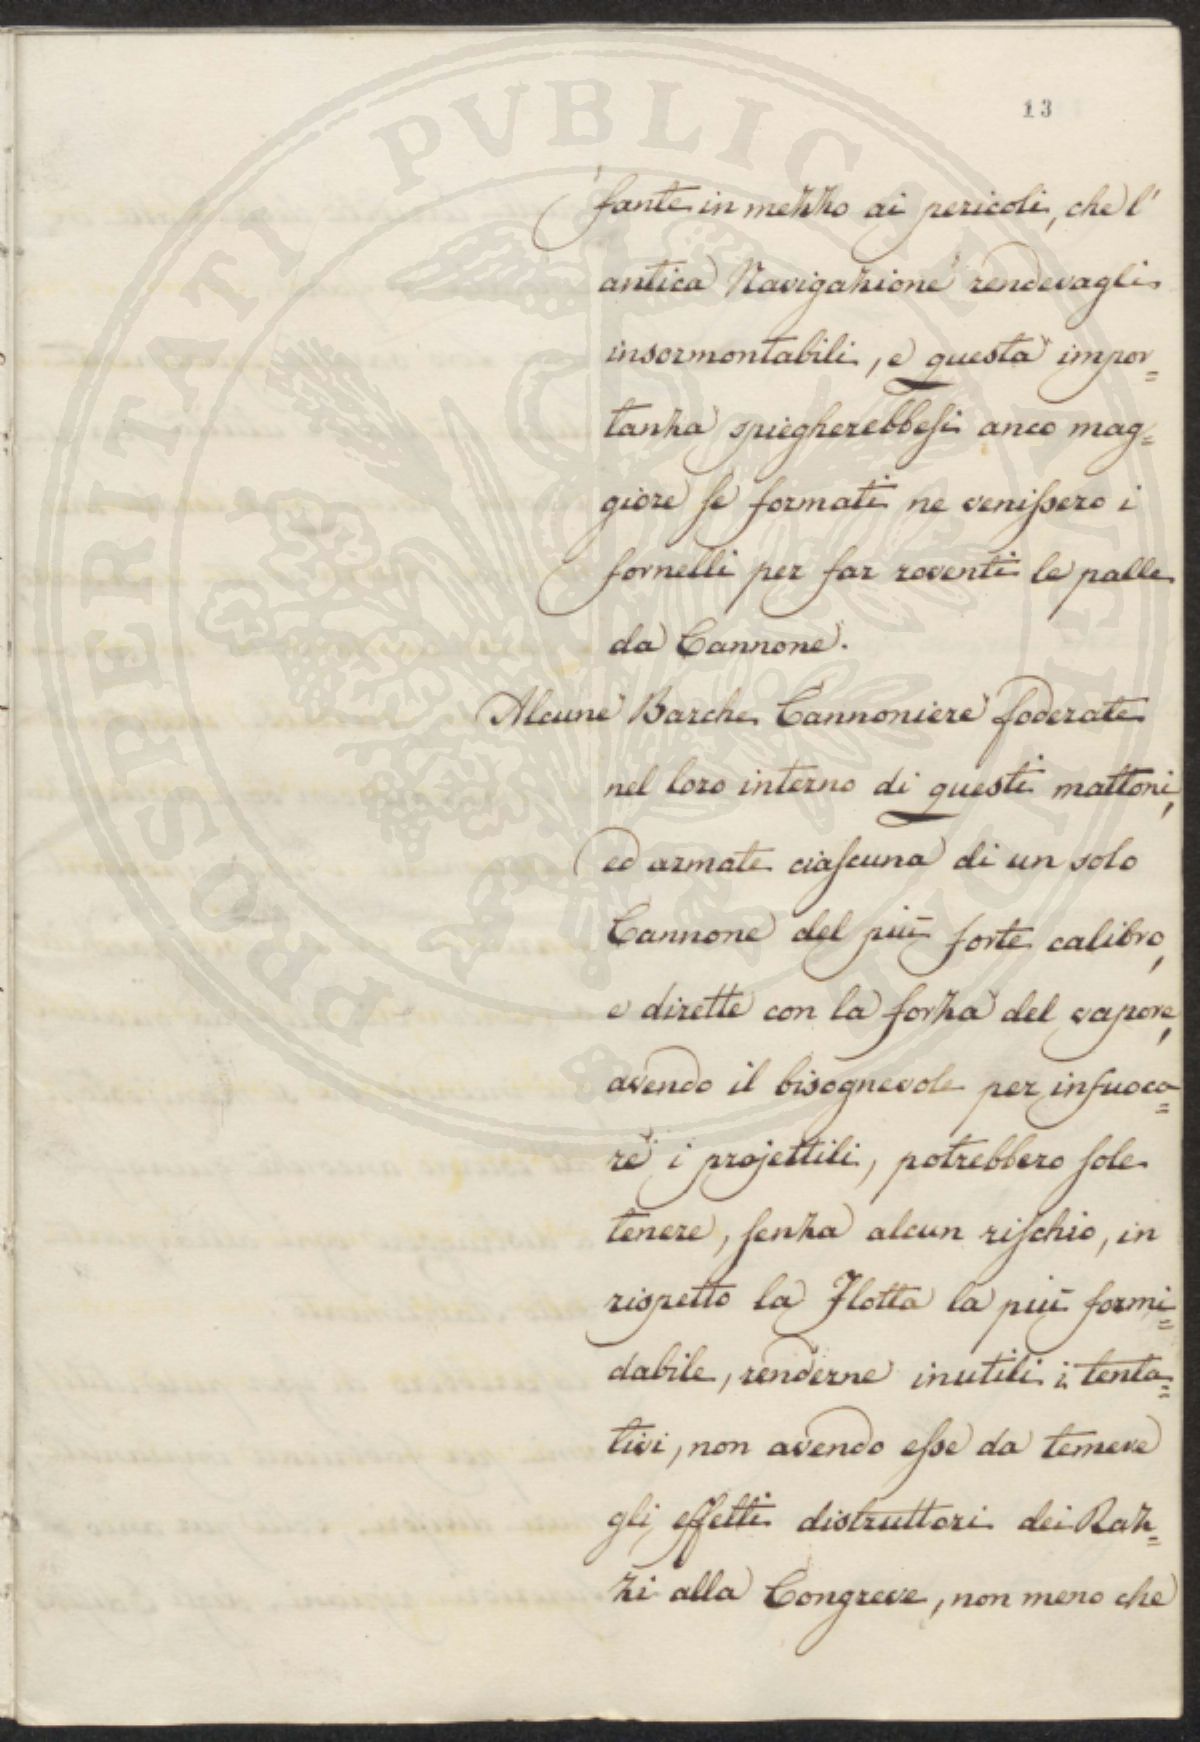 13
fante in mezzo ai pericoli, che l'
antica Navigazione rendevagli
insormontabili, e questa impor=
tanza spiegherebbesi anco mag=
giore se formati ne venissero i
fornelli per far roventi le palle
da Cannone.
Alcune Barche Cannoniere foderate
nel loro interno di questi mattoni,
ed armate ciascuna di un solo
Cannone del più forte calibro,
e dirette con la forza del vapore,
avendo il bisognevole per infuoca=
re i projettili, potrebbero sole
tenere, senza alcun rischio, in
rispetto la Flotta la più formi=
dabile, renderne inutili i tenta=
tivi, non avendo esse da temere
gli effetti distruttori dei Raz=
zi alla Congreve, non meno che
PROSPERITATI PVBLICAE AVGENDAE